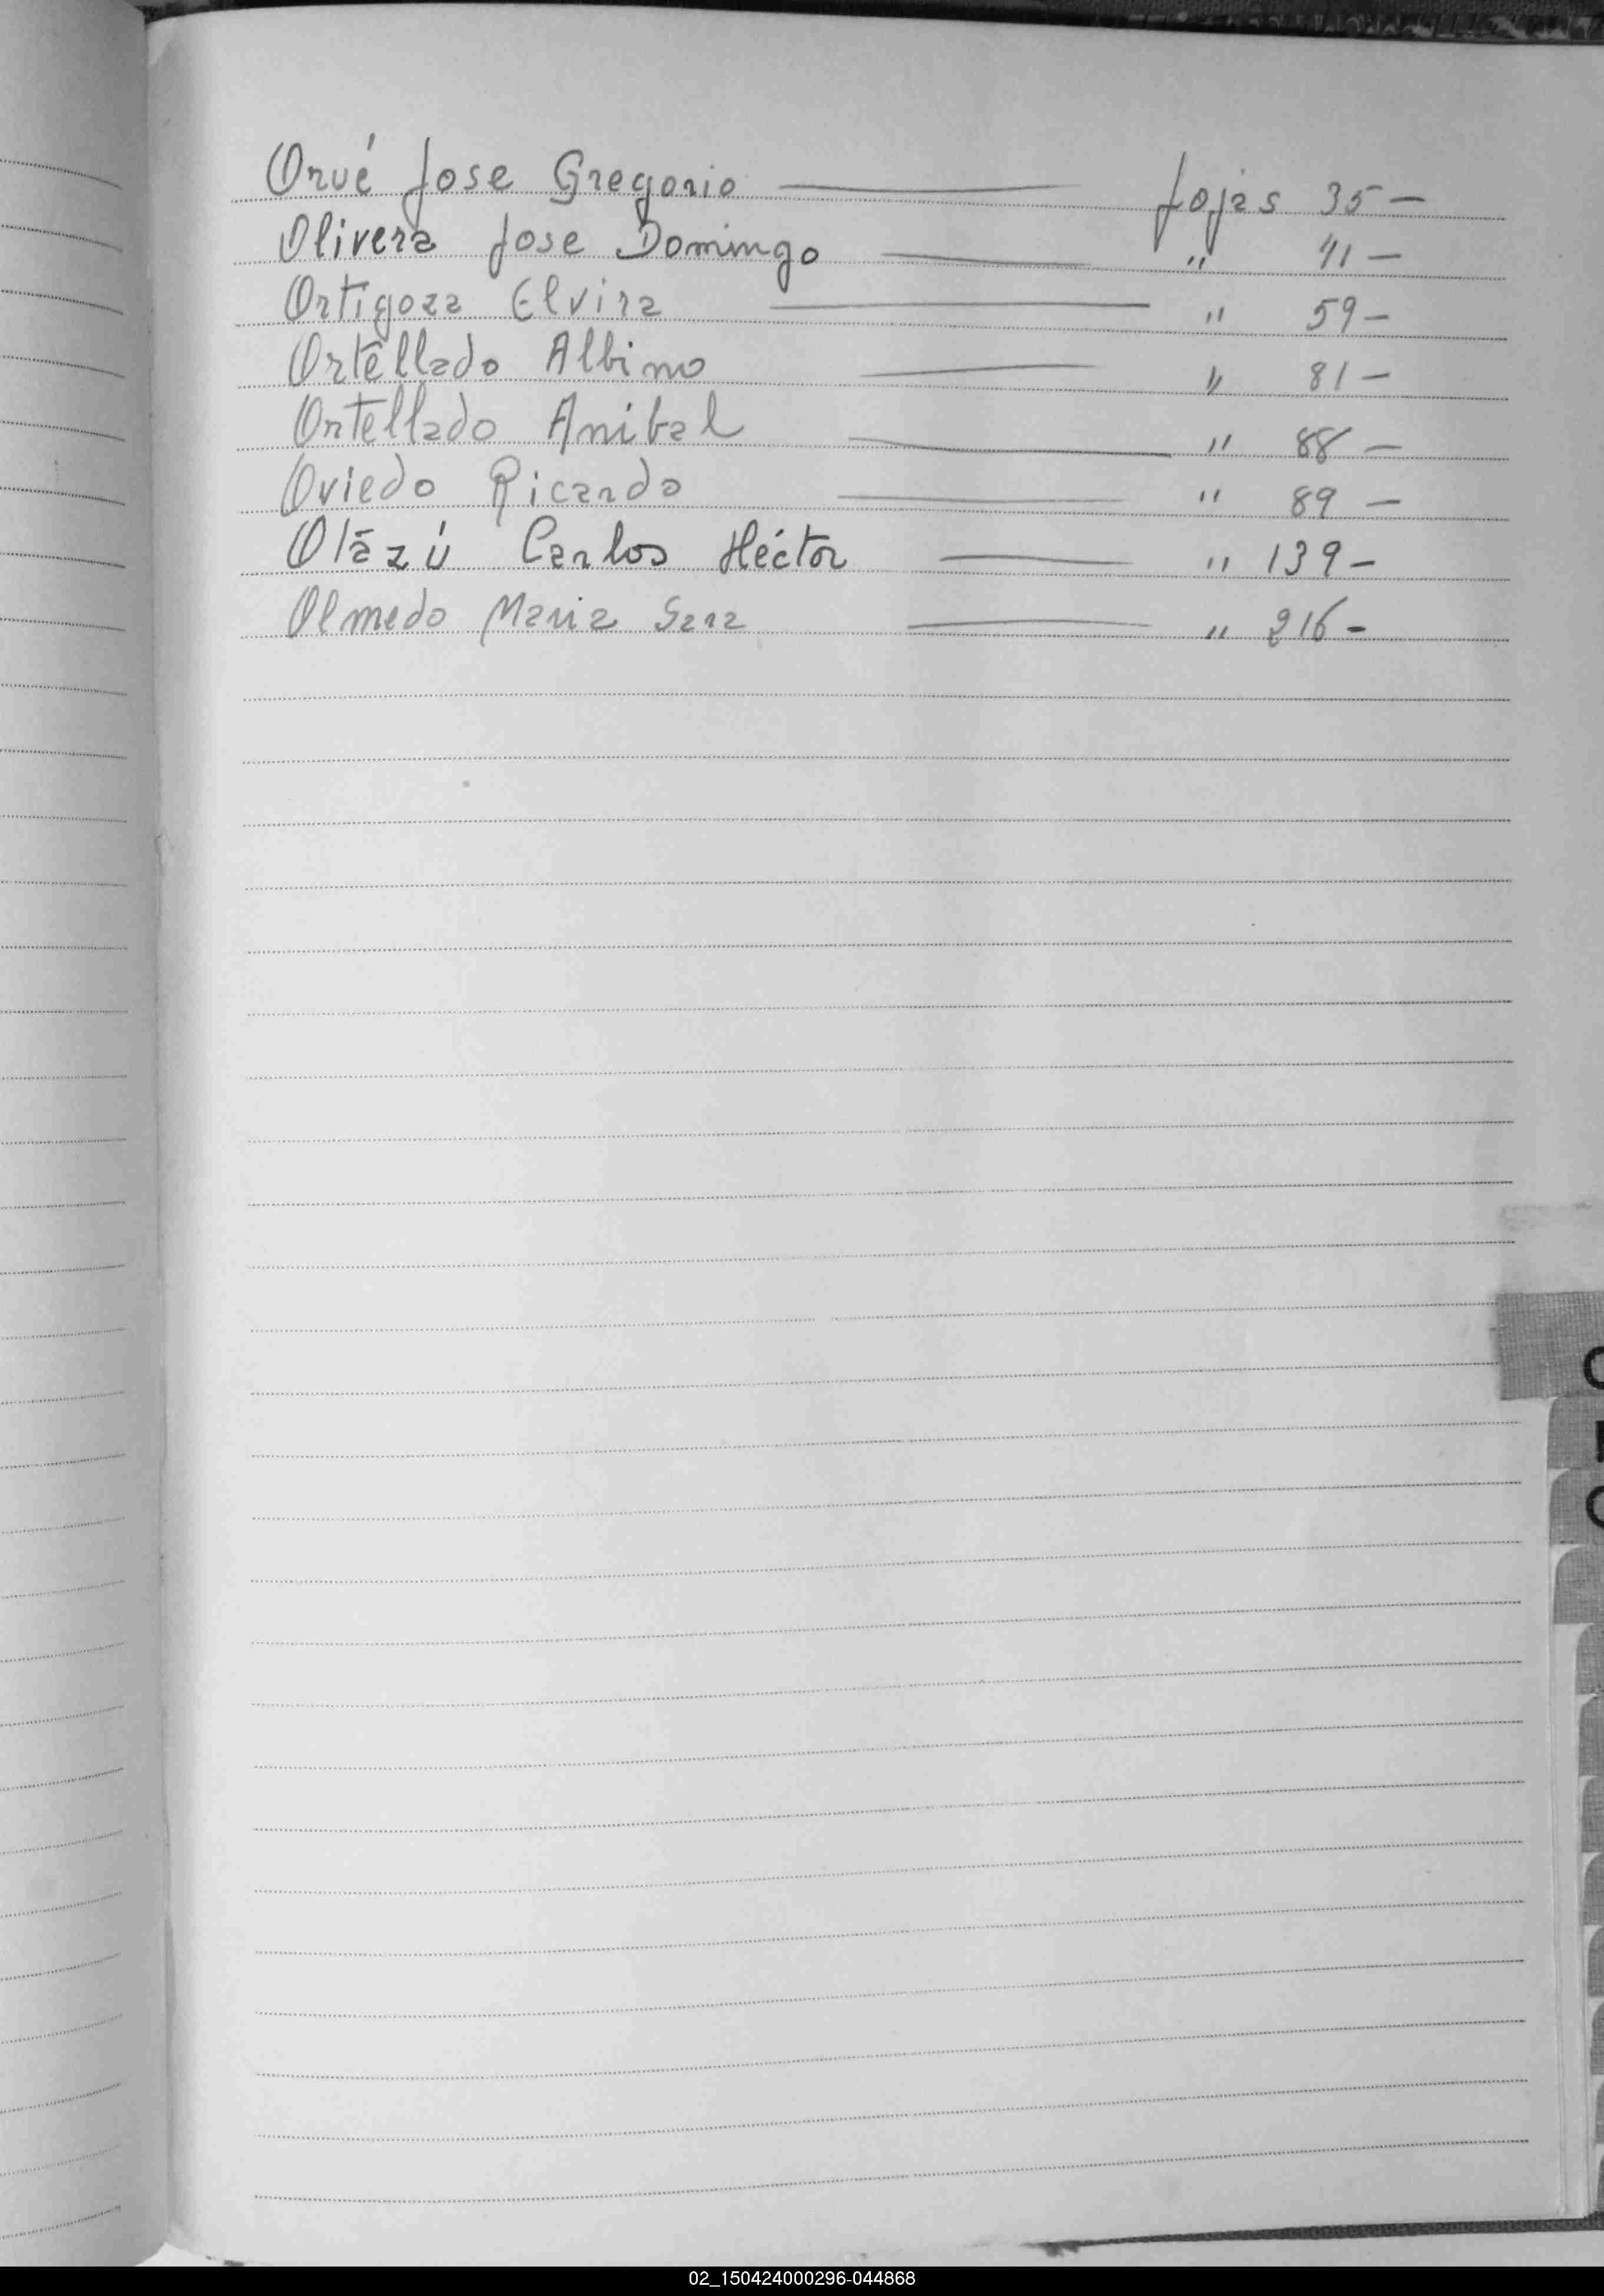 Orué Jose Gregorio ——— fojas 35 —
Olivera Jose Domingo ——— " 41 —
Ortigoza Elvira ——— " 59 —
Ortellado Albino ——— " 81 —
Ortellado Anibal ——— " 88 —
Oviedo Ricardo ——— " 89 —
Olázú Carlos Héctor ——— " 139 —
Olmedo Maria Sara ——— " 216 —
02_150424000296-044868